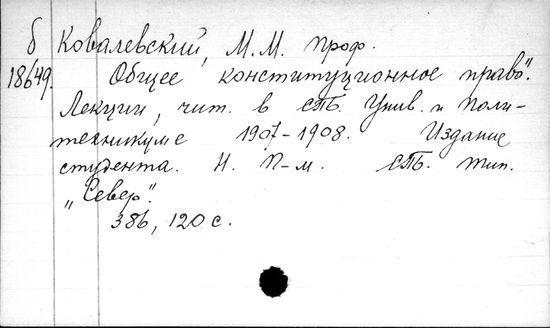 б Ковалевский, М.М. проф.
18649. Общее конституционное право".
Лекции, чит. в СПб. Унив. и поли-
техникуме 1907-1908. Издание
студента. Н. П-м. СПб. тип.
„Север".
386, 120 с.